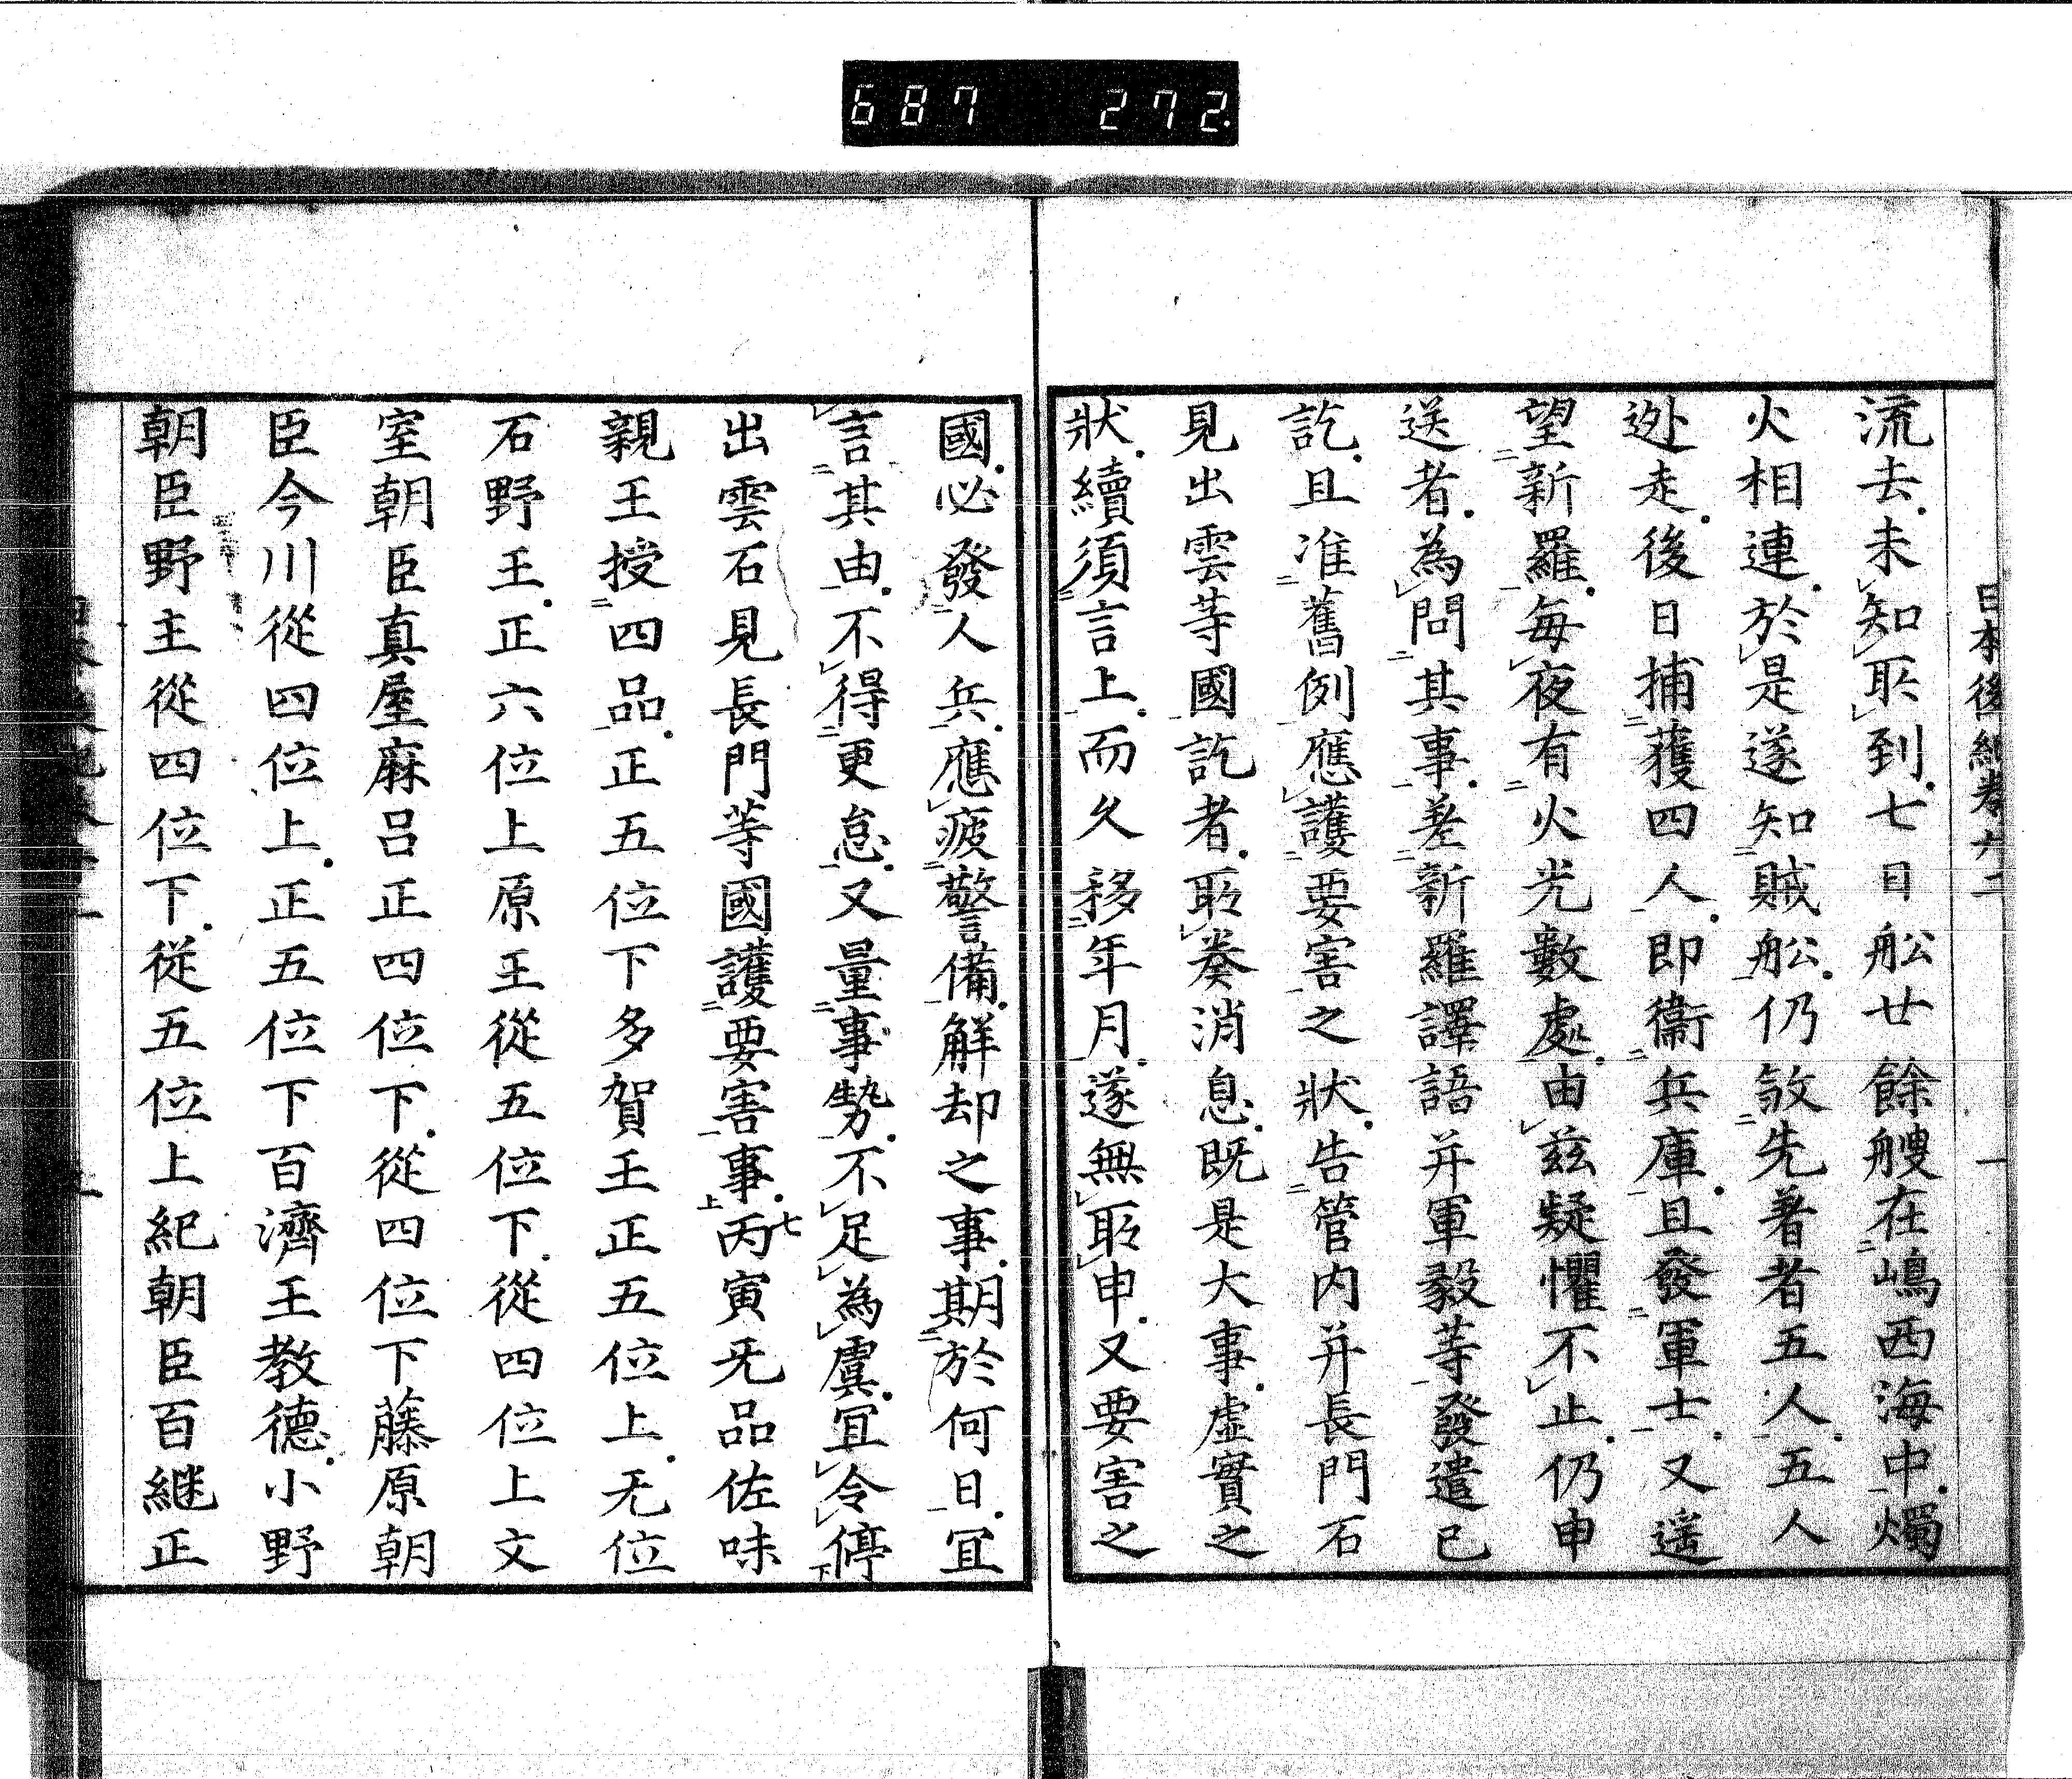 687 272
日本後紀卷廿二 一
流去未知所到七日舩廿餘艘在嶋西海中燭
火相連於是遂知賊舩仍煞先著者五人五人
迯走後日捕獲四人即衞兵庫且發軍士又遥
望新羅毎夜有火光數處由兹疑懼不止仍申
送者為問其事差新羅譯語并軍毅等發遣已
訖且准舊例應護要害之状告管内并長門石
見出雲等國訖者所奏消息既是大事虚實之
状續須言上而久移年月遂無所申又要害之
國必發人兵應疲警備解却之事期於何日冝
言其由不得更怠又量事勢不足為虞冝令停
出雲石見長門等國護要害事丙七寅无品佐味
親王授四品正五位下多賀王正五位上无位
石野王正六位上原王從五位下從四位上文
室朝臣真屋麻呂正四位下從四位下藤原朝
臣今川從四位上正五位下百濟王教德小野
朝臣野主從四位下從五位上紀朝臣百継正